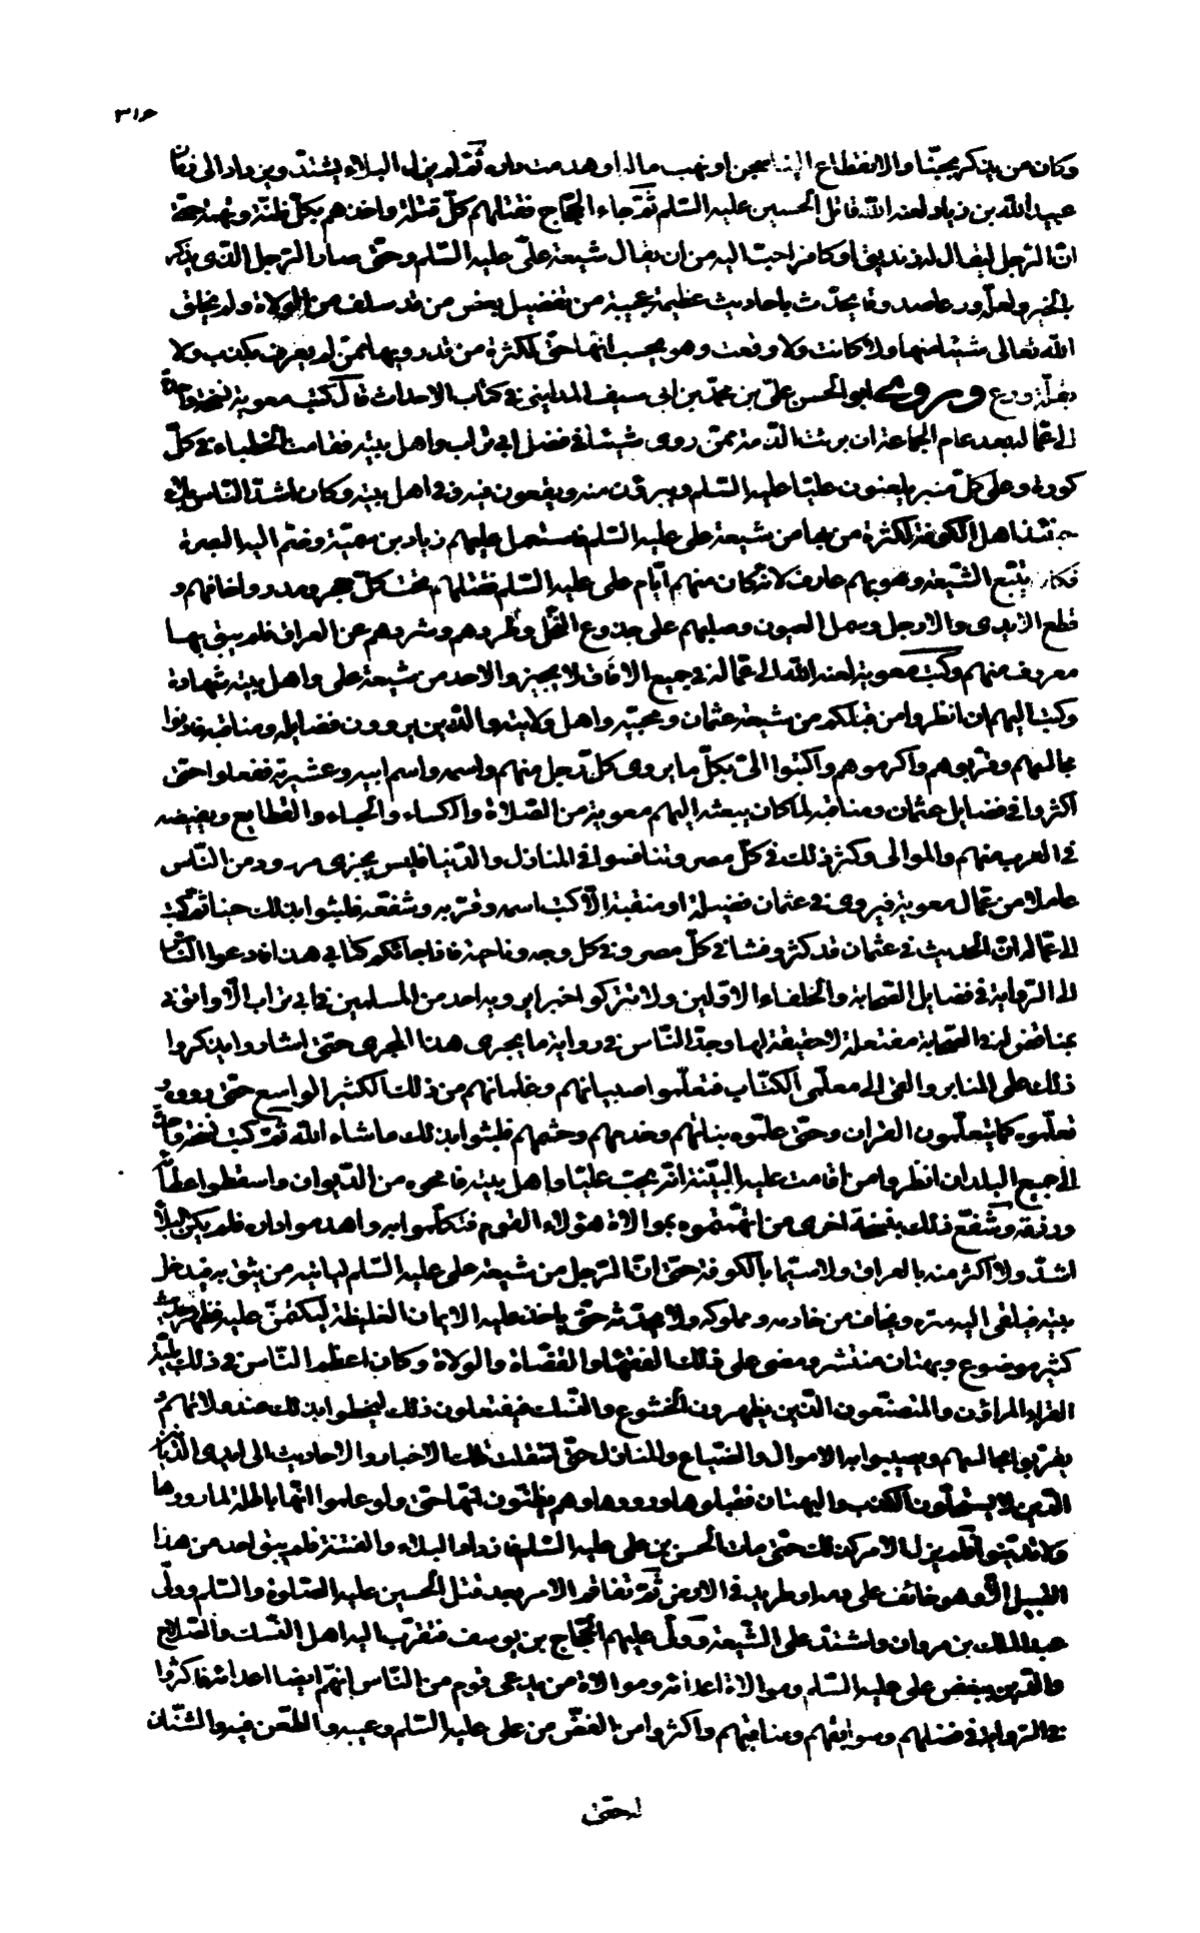 ٣١٦
وكان من يذكر بحبنا والانقطاع الينا سجن او نهب ماله او هدمت داره ثم لم يزل البلاء يشتد ويزداد الى زمان
عبيد الله بن زياد لعنه الله قاتل الحسين عليه السلم ثم جاء الحجاج فقتلهم كل قتلة واخذهم بكل ظنة وتهمة حتى
ان الرجل ليقال له زنديق او كافر احب اليه من ان يقال شيعة على عليه السلم وحتى صار الرجل الذى يذكر
بالخير ولعله ورعا صدوقا يحدث باحاديث عظيمة عجيبة من تفضيل بعض من قد سلف من الولاة ولم يخلق
الله تعالى شيئا منها ولا كانت ولا وقعت وهو يحسب انها حق لكثرة من قد رويها ممن لم يعرف بكذب ولا
بقلة ورع وروى ابو الحسن على بن محمد بن ابى سيف المداينى فى كتاب الاحداث قال كتب معوية نسخة واحدة
الى عماله بعد عام الجماعة ان برئت الذمة ممن روى شيئا فى فضل ابى تراب واهل بيته فقامت الخطباء فى كل
كورة وعلى كل منبر يلعنون عليا عليه السلم ويبرؤن منه ويقعون فيه وفى اهل بيته وكان اشد الناس بلاء
حينئذ اهل الكوفة لكثرة من بها من شيعة على عليه السلم فاستعمل عليهم زياد بن سمية وضم اليه البصرة
فكان يتتبع الشيعة وهو بهم عارف لانه كان منهم ايام على عليه السلم فقتلهم تحت كل حجر ومدر واخافهم و
قطع الايدى والارجل وسمل العيون وصلبهم على جذوع النخل وطردهم وشردهم عن العراق فلم يبق بها
معروف منهم وكتب معوية لعنه الله الى عماله فى جميع الافاق لا يجيزوا لاحد من شيعة على واهل بيته شهادة
وكتب اليهم ان انظروا من قبلكم من شيعة عثمان ومحبيه واهل ولايته والذين يروون فضايله ومناقبه فادنوا
مجالسهم وقربوهم واكرموهم واكتبوا الى بكل ما يروى كل رجل منهم واسمه واسم ابيه وعشيرته ففعلوا حتى
اكثروا فى فضايل عثمان ومناقبه لما كان يبعثه اليهم معوية من الصلاة والكساء والحباء والقطايع ويفيضه
فى العرب منهم والموالى وكثر ذلك فى كل مصر وتنافسوا فى المنازل والدنيا فليس يجيئ مردود من الناس
عاملا من عمال معوية فيروى فى عثمان فضيلة او منقبة الا كتب اسمه وقربه وشفعه فلبثوا بذلك حينا ثم كتب
الى عماله ان الحديث فى عثمان قد كثر وفشا فى كل مصر وفى كل وجه وناحية فاذا جائكم كتابى هذا فادعوا الناس
الى الرواية فى فضايل الصحابة والخلفاء الاولين ولا تتركوا خبرا يرويه احد من المسلمين فى ابى تراب الا واتونى
بمناقض له فى الصحابة مفتعلة لا حقيقة لها وجد الناس فى رواية ما يجرى هذا المجرى حتى اشادوا بذكر
ذلك على المنابر والقى الى معلمى الكتاب فعلموا صبيانهم وغلمانهم من ذلك الكثير الواسع حتى رووه و
تعلموه كما يتعلمون القران وحتى علموه بناتهم وخدمهم وحشمهم فلبثوا بذلك ما شاء الله ثم كتب نسخة واحدة
الى جميع البلدان انظروا من اقامت عليه البينة انه يحب عليا واهل بيته فامحوه من الديوان واسقطوا عطاه
ورزقه وشفع ذلك بنسخة اخرى من اتهمتموه بموالاة هؤلاء القوم فنكلوا به واهدموا داره فلم يكن البلاء
اشد ولا اكثر منه بالعراق ولا سيما بالكوفة حتى ان الرجل من شيعة على عليه السلم ليأتيه من يثق به فيدخل
بيته فيلقى اليه سره ويخاف من خادمه ومملوكه ولا يحدثه حتى ياخذ عليه الايمان الغليظة ليكتمن عليه فظهر حديث
كثير موضوع وبهتان منتشر ومضى على ذلك الفقهاء والقضاة والولاة وكان اعظم الناس فى ذلك بلية
القراء المراؤن والمتصنعون الذين يظهرون الخشوع والنسك فيفتعلون ذلك ليحظوا بذلك عند ولاتهم و
يقربوا مجالسهم ويصيبوا به الاموال والضياع والمنازل حتى انتقلت تلك الاخبار والاحاديث الى ايدى الديانين
الذين لا يستحلون الكذب والبهتان فقبلوها ورووها وهم يظنون انها حق ولو علموا انها باطلة لما رووها
ولا تدينوا بها فلم يزل الامر كذلك حتى مات الحسن بن على عليه السلم فازداد البلاء والفتنة فلم يبق احد من هذا
القبيل الا وهو خائف على دمه او طريد فى الارض ثم تفاقم الامر بعد قتل الحسين عليه الصلوة والسلم وولى
عبد الملك بن مروان واشتد على الشيعة وولى عليهم الحجاج بن يوسف فتقرب اليه اهل النسك والصلاح
والدين ببغض على عليه السلم وموالاة اعدائه وموالاة من يدعى قوم من الناس انهم ايضا اعدائه فاكثروا
فى الرواية فى فضلهم وسوابقهم ومناقبهم واكثروا من الغض من على عليه السلم وعيبه والطعن فيه والشنان
له حتى